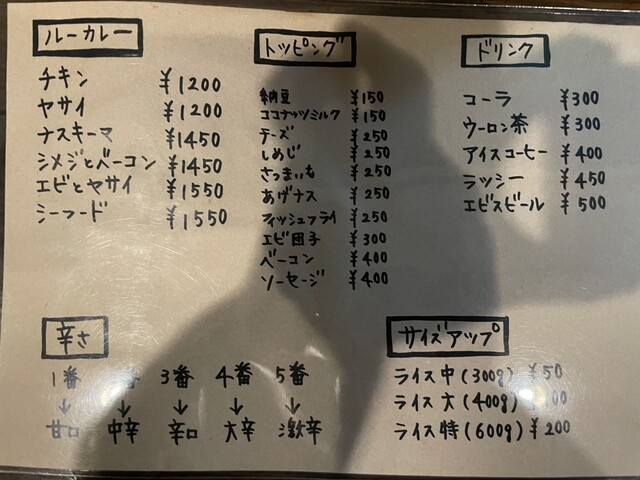 ルーカレー
チキン ¥1200
ヤサイ ¥1200
ナスキーマ ¥1450
シメジとベーコン ¥1450
エビとヤサイ ¥1550
シーフード ¥1550
トッピング
納豆 ¥150
ココナッツミルク ¥150
チーズ ¥250
しめじ ¥250
さつまいも ¥250
あげナス ¥250
フィッシュフライ ¥250
エビ団子 ¥300
ベーコン ¥400
ソーセージ ¥400
ドリンク
コーラ ¥300
ウーロン茶 ¥300
アイスコーヒー ¥400
ラッシー ¥450
エビスビール ¥500
辛さ
1番 番 3番 4番 5番
↓ ↓ ↓ ↓ ↓
甘口 中辛 辛口 大辛 激辛
サイズアップ
ライス中(300g) ¥50
ライス大(400g)
ライス特(600g) ¥200